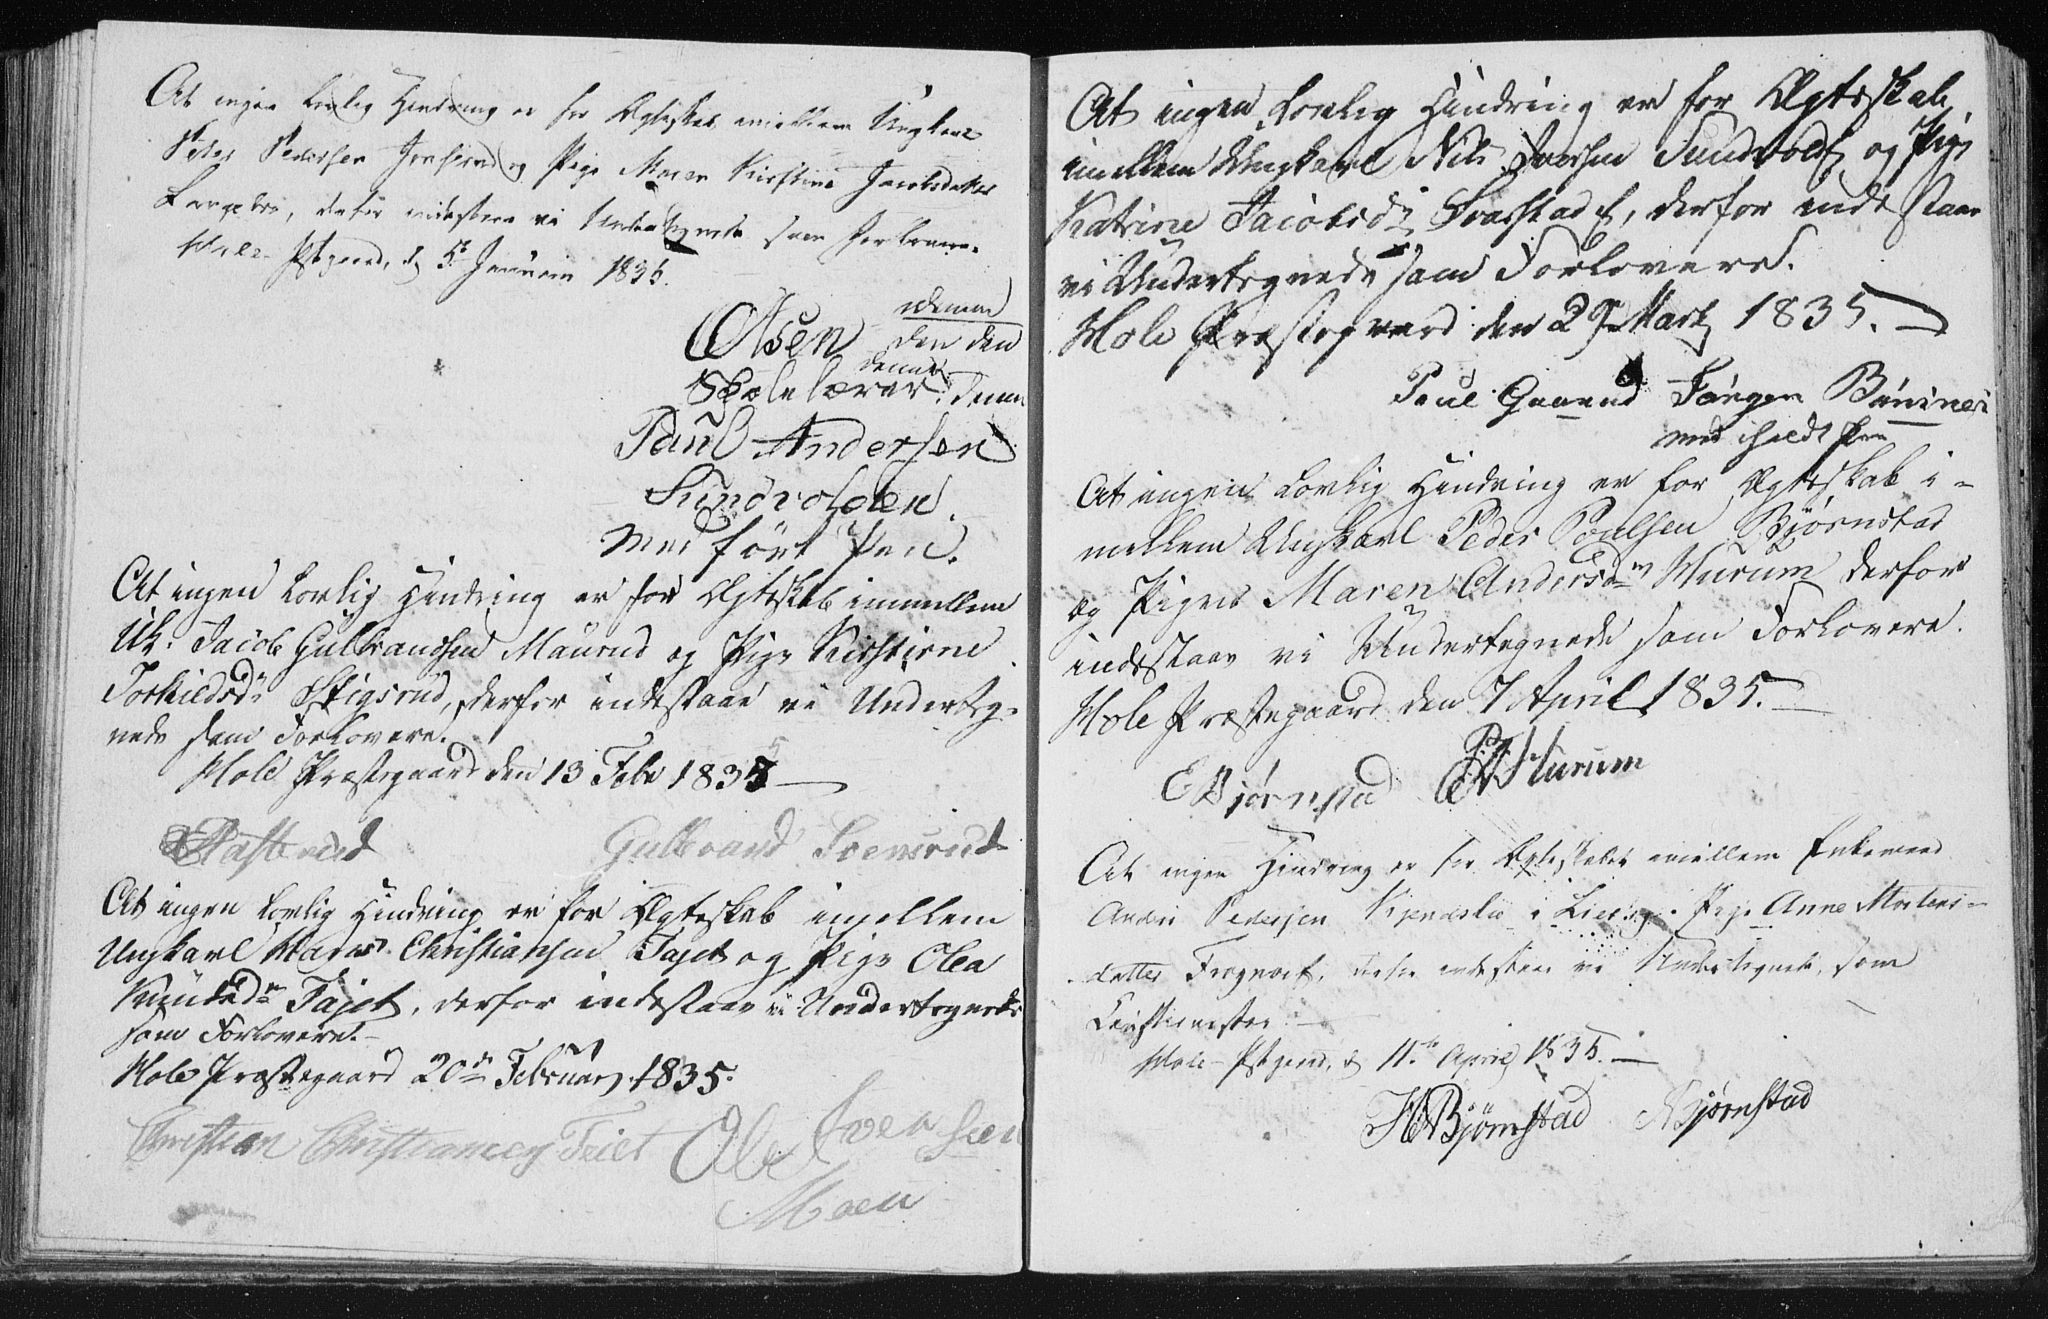 At ingen Lovlig Hindring er for Ægteskab imellem Ungkarl
Peder Pedersen og Pige Maren Kirstine Jacobsdatter
derfor indestaae vi Undertegnede som Forlovere.
Hole Pstgaard, d 5te Januar 1835.
Olsen
den den
Skolelærer
Paul Andersen
Sundvolden.
med ført Pen.
At ingen Lovlig Hindring er for Ægteskab immellem
Uk. Jacob Gulbrandsen Maurud og Pige Kirstine
Torkildsdr Stigsrud, derfor indestaae vi Underteg-
nede som Forlovere.
Hole Præstegaard den 13 Febr 1835
Gulbrand Svensrud
At ingen Lovlig Hindring er for Ægteskab imellem
Ungkarl Hans Christiansen Fajet og Pige Olea
Knudsdr Fajet, derfor indestaae vi Undertegnede
som Forlovere.
Hole Præstegaard 20de Februar 1835.
Christian Christiansen Feiet Ole Iversen
Moen
At ingen Lovlig Hindring er for Ægteskab
imellem Ungkarl Nils Iversen Sundvold E. og Pige
Katrine Jacobsdr Svarstad E, derfor indestaae
vi Undertegnede som Forlovere.
Hole Præstegaard den 29 Marts 1835.
Poul Gaarud Jørgen
med iholdt Pen
At ingen Lovlig Hindring er for Ægteskab i-
mellem Ungkarl Peder Poulsen Bjørnstad
og Pigen Maren Andersdr Murum derfor
indestaae vi Undertegnede som Forlovere.
Hole Præstegaard den 7 April 1835.
E Bjørnstad Murum
At ingen Hindring er for Ægteskabet imellem Enkemand
Anders Pedersen i Lier og Pige Anne Mortens-
datter Frognør E, derfor indestaae vi Undertegnede, som
Hole Pstgaard, d 11te April 1835.
H Bjørnstad Bjørnstad